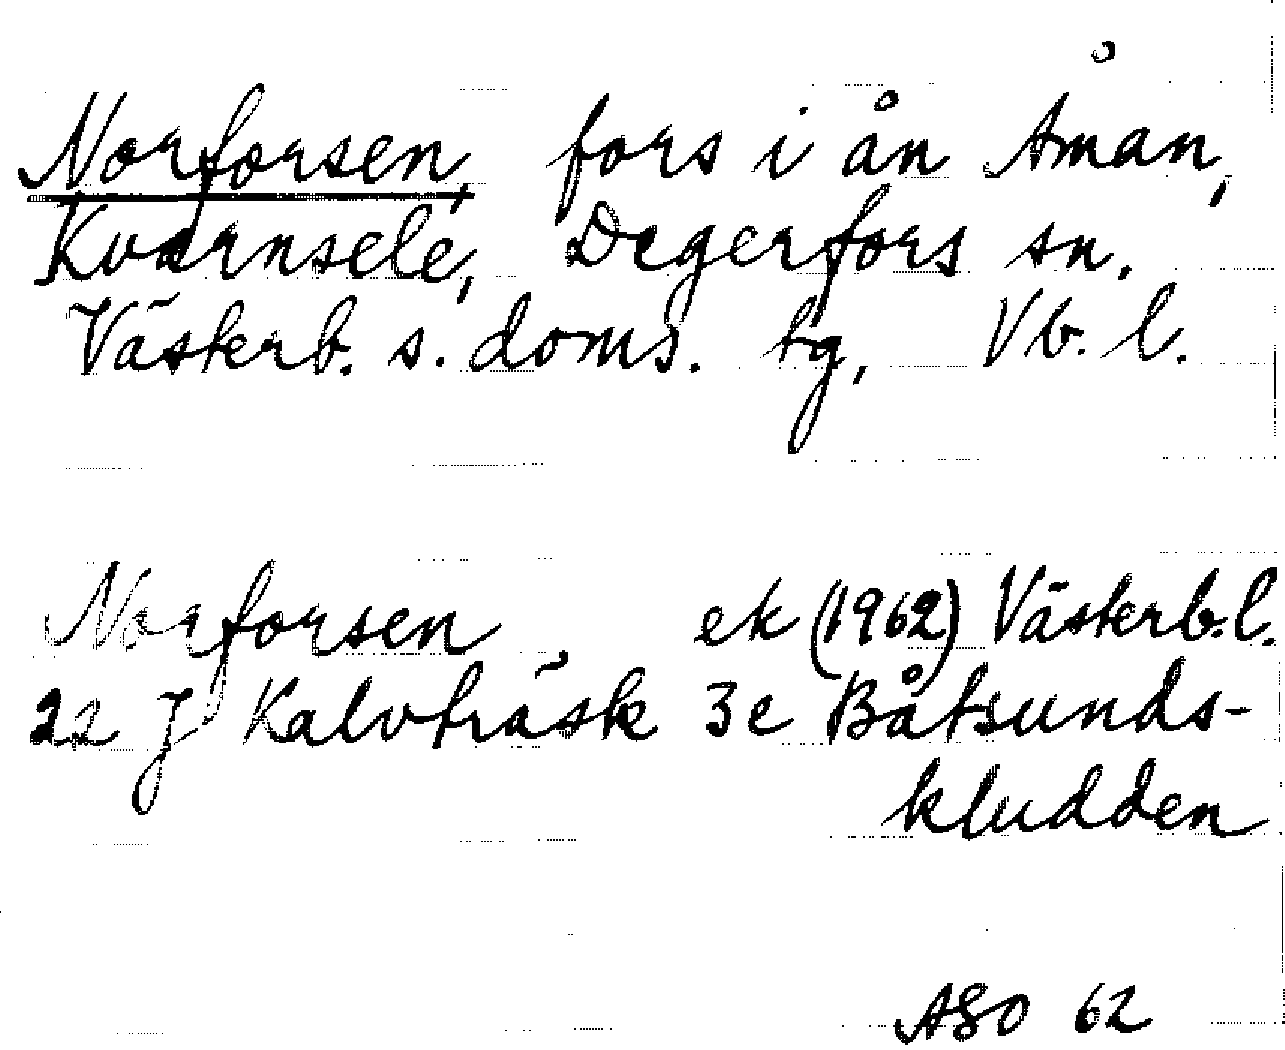 Norforsen, fors i ån Åman,
Kvarnsele, Degerfors sn.
Västerb. s. doms. tg, Vb. l.
Norforsen, ek (1962) Västerb.l.
22 J Kalvträsk 3e Båtsunds-
kludden
ASO 62